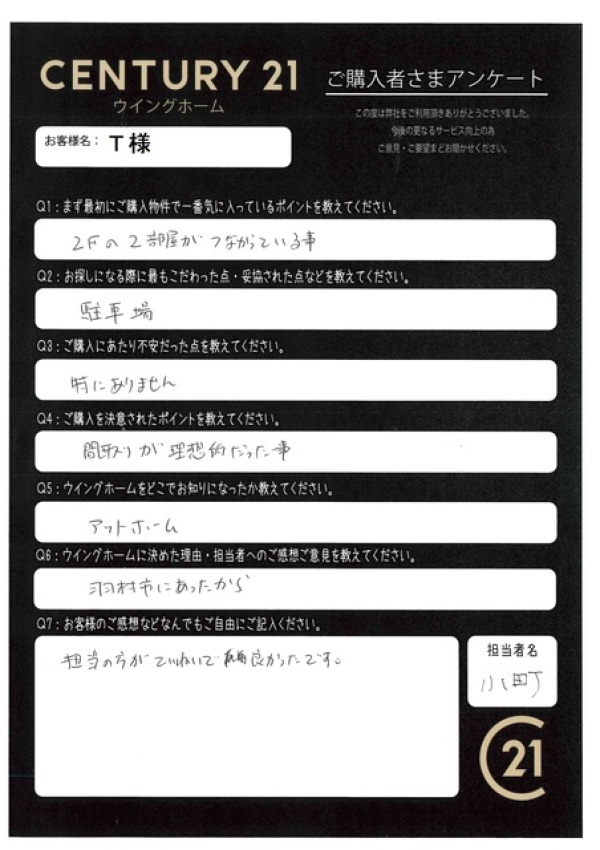 CENTURY 21
ウイングホーム
ご購入者さまアンケート
この度は弊社をご利用頂きありがとうございました。
今後の更なるサービス向上の為
ご意見・ご要望までお聞かせください。
お客様名： T様
Q1：まず最初にご購入物件で一番気に入っているポイントを教えてください。
2Fの2部屋がつながっている事
Q2：お探しになる際に最もこだわった点・妥協された点などを教えてください。
駐車場
Q3：ご購入にあたり不安だった点を教えてください。
特にありません
Q4：ご購入を決意されたポイントを教えてください。
間取りが理想的だった事
Q5：ウイングホームをどこでお知りになったか教えてください。
アットホーム
Q6：ウイングホームに決めた理由・担当者へのご感想ご意見を教えてください。
羽村市にあったから
Q7：お客様のご感想などなんでもご自由にご記入ください。
担当の方がていねいで良かったです。
担当者名
小町
21